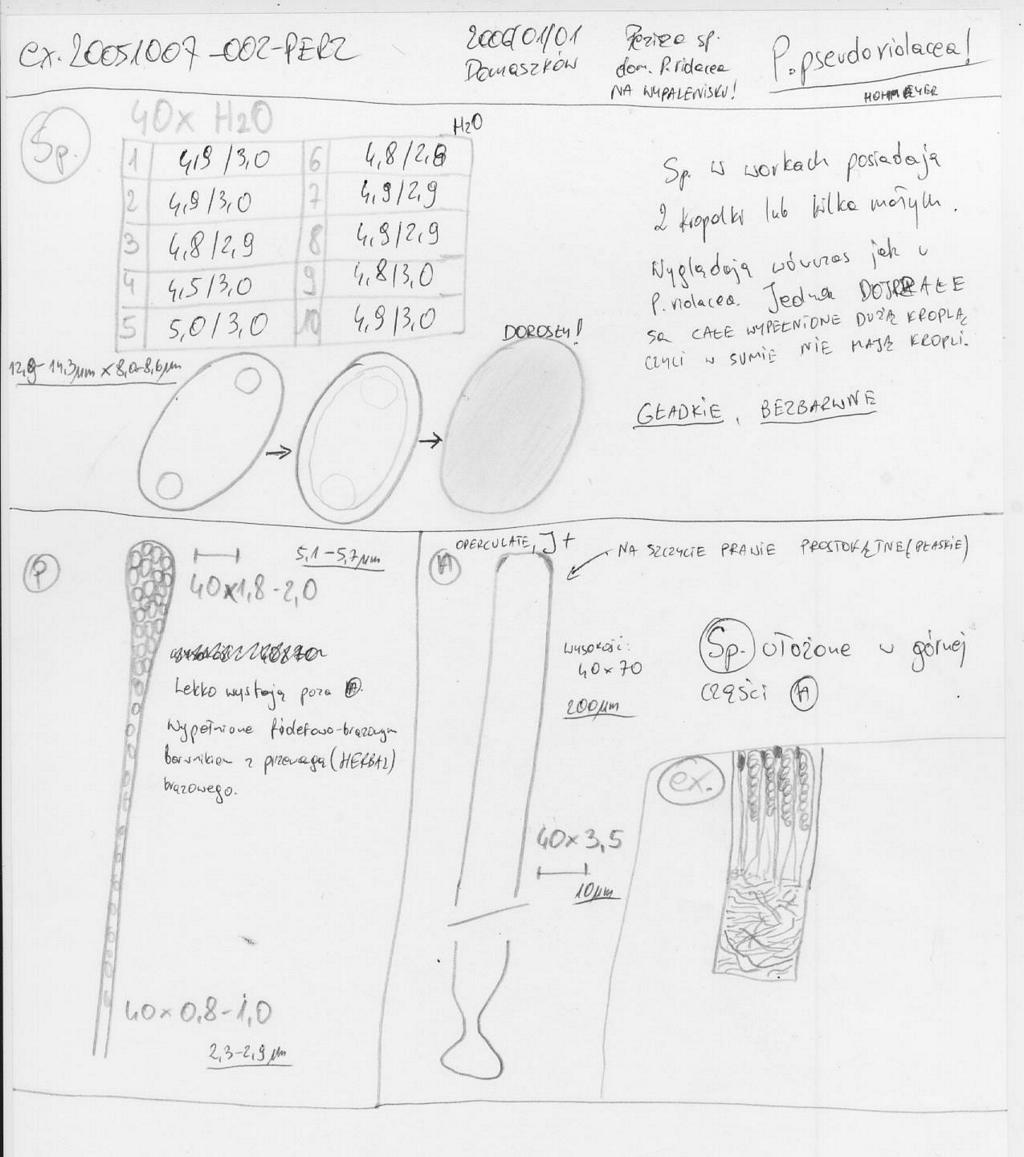 ex. 20051007-002-PERZ
2006/01/01
Domaszków
Peziza sp.
dom. P. violacea
NA WYPALENISKU!
P. pseudoviolacea!
Sp.
40x H2O
H2O
1 4,9/3,0 6 4,8/2,8
2 4,9/3,0 7 4,9/2,9
3 4,8/2,9 8 4,9/2,9
4 4,5/3,0 9 4,8/3,0
5 5,0/3,0 10 4,9/3,0
Sp. w workach posiadają
2 kropelki lub kilka małych.
Wyglądają wówczas jak u
P. violacea. Jednak DOJRZAŁE
są CAŁE WYPEŁNIONE DUŻĄ KROPLĄ
CZYLI W SUMIE NIE MAJĄ KROPLI.
GŁADKIE, BEZBARWNE
12,9-14,3µm x 8,0-8,6µm
DOROSŁY!
P
5,1-5,7µm
40x1,8-2,0
Lekko wystają poza A.
Wypełnione fioletowo-brązowym
barwnikiem z przewagą (HERBAL)
brązowego.
40x0,8-1,0
2,3-2,9µm
A
OPERCULATE, J+
NA SZCZYCIE PRAWIE PROSTOKĄTNE (PŁASKIE)
WYSOKOŚĆ:
40x70
200µm
40x3,5
10µm
Sp. ułożone w górnej
części A
ex.